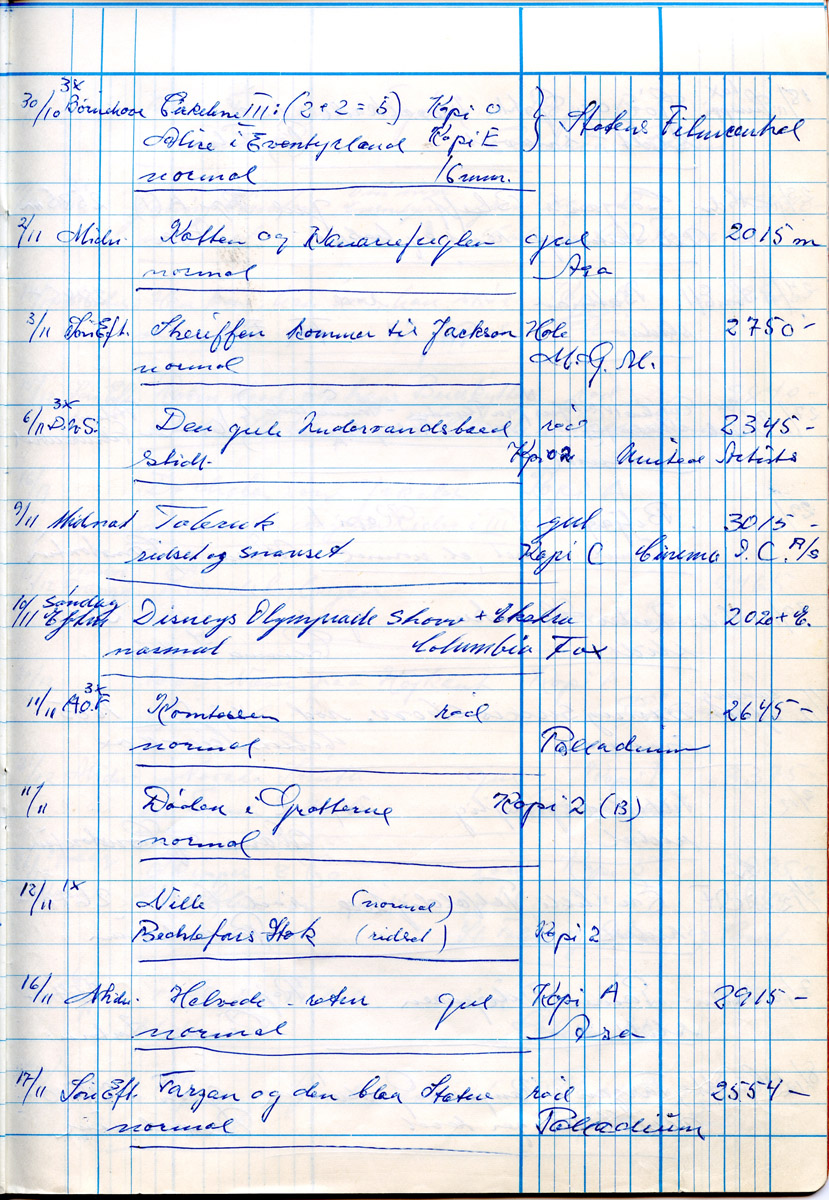 3x
30/10 Børnehave Cirkeline III: (2+2=5) Kopi O } Statens Filmcentral
Alice i Eventyrland Kopi E
normal 16mm.
2/11 Midn. Katten og Kanariefuglen gul 2015 m
normal Asa
3/11 Søn Eft. Sheriffen kommer til Jackson Hole 2750 -
normal M.G.M.
3x
6/11 Den gule Undervandsbaad rød 2345 -
slidt. Kopi 02 United Artists
9/11 Midnat Tobruk gul 3015 -
ridset og snavset Kopi C Cinema I.C. A/S
10/11 Søndag Disneys Olympiade Show + Ekstra 2020 + E.
Efterm
normal Columbia Fox
3x
11/11 A.O.F. Komtessen rød 2645 -
normal Palladium
11/11 Døden i Grotterne Kopi 2 (B)
normal
12/11 1x Nille (normal)
Bedstefars Stok (ridset) Kopi 2
16/11 Midn. Helvede-ruten gul Kopi A 2915 -
normal Asa
17/11 Søn Eft. Tarzan og den blaa Statue rød 2554 -
normal Palladium